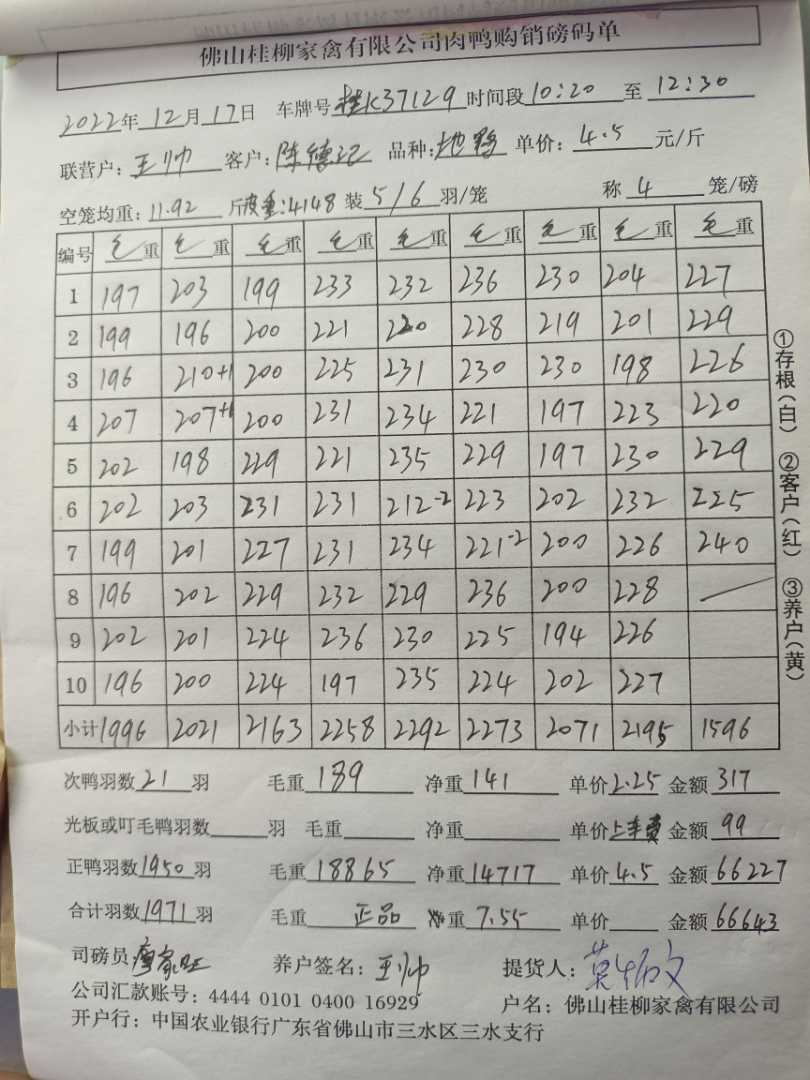 佛山桂柳家禽有限公司肉鸭购销磅码单
2022年 12月17日 车牌号 桂K37129 时间段 10:20 至 12:30
联营户: 王帅 客户: 陈德记 品种: 地鸭 单价: 4.5 元/斤
空笼均重: 11.92 斤 皮重:4148 装 5/6 羽/笼 称 4 笼/磅
编号 毛重 毛重 毛重 毛重 毛重 毛重 毛重 毛重 毛重
1 197 203 199 233 232 236 230 204 227
2 199 196 200 221 220 228 219 201 229
3 196 210+1 200 225 231 230 230 198 226
4 207 207+1 200 231 234 221 197 223 220
5 202 198 229 221 235 229 197 230 229
6 202 203 231 231 212-2 223 202 232 225
7 199 201 227 231 234 221-2 200 226 240
8 196 202 229 232 229 236 200 228
9 202 201 224 236 230 225 194 226
10 196 200 224 197 235 224 202 227
小计 1996 2021 2163 2258 2292 2273 2071 2195 1596
次鸭羽数 21 羽 毛重 189 净重 141 单价 2.25 金额 317
光板或叮毛鸭羽数 羽 毛重 净重 单价 上车费 金额 99
正鸭羽数 1950 羽 毛重 18865 净重 14717 单价 4.5 金额 66227
合计羽数 1971 羽 毛重 正品 重 7.55 单价 金额 66643
司磅员 廖家旺 养户签名: 王帅 提货人:
公司汇款账号: 4444 0101 0400 16929 户名: 佛山桂柳家禽有限公司
开户行: 中国农业银行广东省佛山市三水区三水支行
①存根(白) ②客户(红) ③养户(黄)